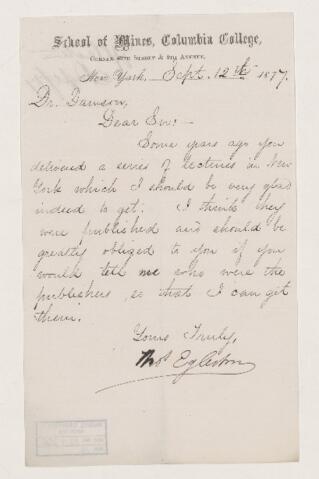 School of Mines, Columbia College,
Corner 49th Street & 4th Avenue,
New York, Sept. 12th 1877.
Dr. Dawson,
Dear Sir:-
Some years ago you
delivered a series of lectures in New
York which I should be very glad
indeed to get. I think they
were published and should be
greatly obliged to you if you
would tell me who were the
publishers, so that I can get
them.
Yours Truly,
Thos Egleston